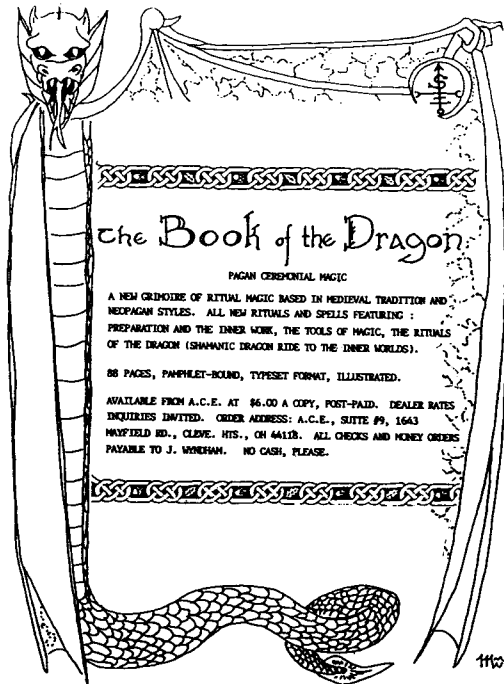 the Book of the Dragon
PAGAN CEREMONIAL MAGIC
A NEW GRIMOIRE OF RITUAL MAGIC BASED IN MEDIEVAL TRADITION AND
NEOPAGAN STYLES. ALL NEW RITUALS AND SPELLS FEATURING :
PREPARATION AND THE INNER WORK, THE TOOLS OF MAGIC, THE RITUALS
OF THE DRAGON (SHAMANIC DRAGON RIDE TO THE INNER WORLDS).
88 PAGES, PAMPHLET-BOUND, TYPESET FORMAT, ILLUSTRATED.
AVAILABLE FROM A.C.E. AT $6.00 A COPY, POST-PAID. DEALER RATES
INQUIRIES INVITED. ORDER ADDRESS: A.C.E., SUITE #9, 1643
MAYFIELD RD., CLEVE. HTS., OH 44118. ALL CHECKS AND MONEY ORDERS
PAYABLE TO J. WYNDHAM. NO CASH, PLEASE.